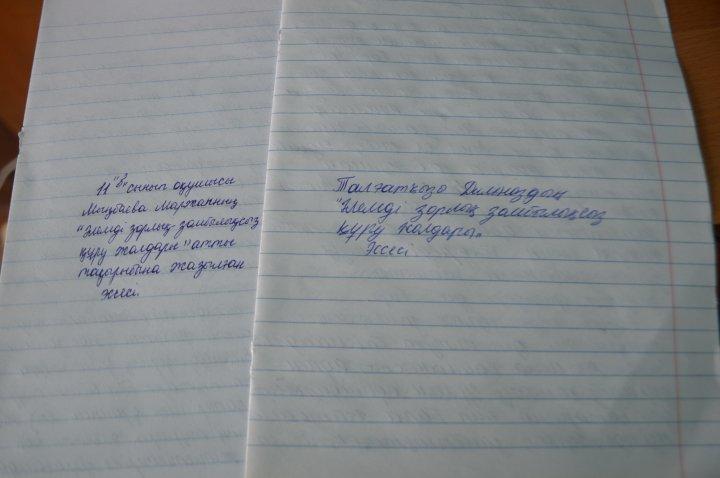 11 "В" сынып оқушысы
Мыңбаева Маржанның
"Әлемді зорлық-зомбылықсыз
құру жолдары" атты
тақырыбына жазылған
эссесі.
Талғатқызы Дильназдың
"Әлемді зорлық зомбылықсыз
құру жолдары"
Эссесі